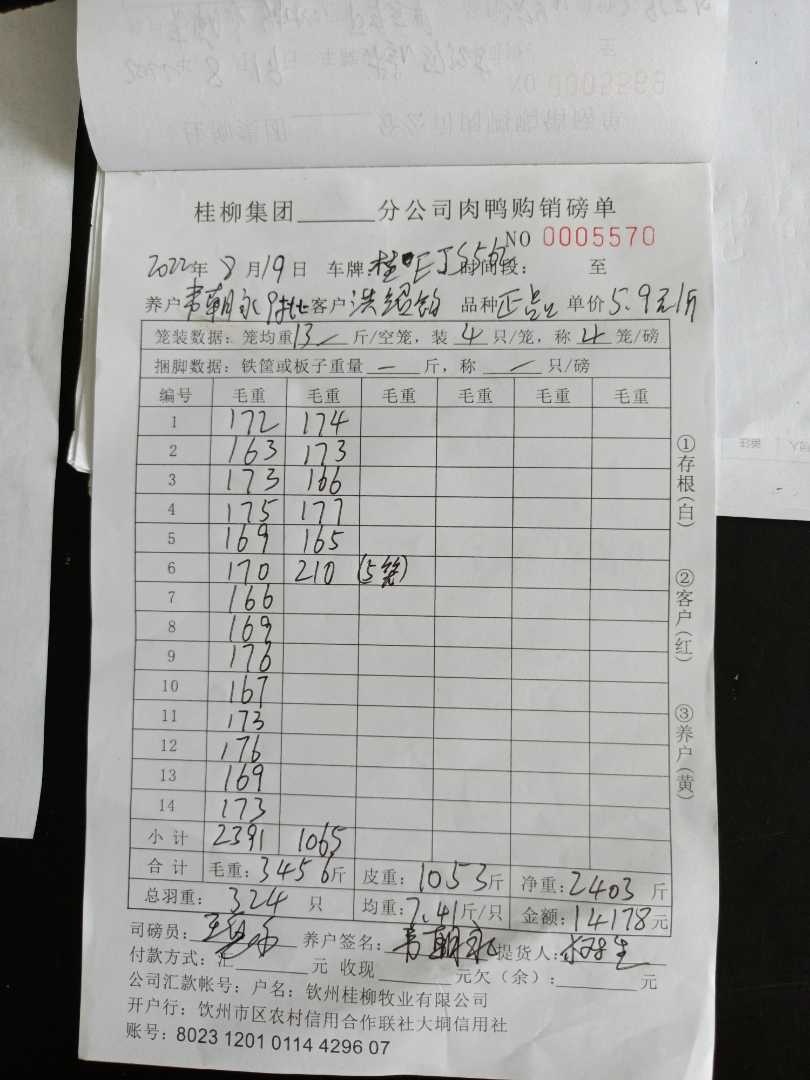 桂柳集团______分公司肉鸭购销磅单
NO 0005570
2022年 8月19日 车牌 桂 时间段: 至
养户 韦朝永 客户 洪绍钧 品种 正品 单价 5.9元/斤
笼装数据: 笼均重13斤/空笼, 装 4 只/笼, 称 4 笼/磅
捆脚数据: 铁筐或板子重量 — 斤, 称 / 只/磅
编号 毛重 毛重 毛重 毛重 毛重 毛重
1 172 174
2 163 173
3 173 166
4 175 177
5 169 165
6 170 210 (5笼)
7 166
8 169
9 176
10 167
11 173
12 176
13 169
14 173
小计 2391 1065
合计 毛重: 3456斤 皮重: 1053斤 净重: 2403 斤
总羽重: 324 只 均重: 7.41斤/只 金额: 14178元
司磅员: 养户签名: 韦朝永 提货人:
付款方式: 汇______元 收现______元欠(余):______元
公司汇款帐号: 户名: 钦州桂柳牧业有限公司
开户行: 钦州市区农村信用合作联社大垌信用社
账号: 8023 1201 0114 4296 07
①存根(白)
②客户(红)
③养户(黄)